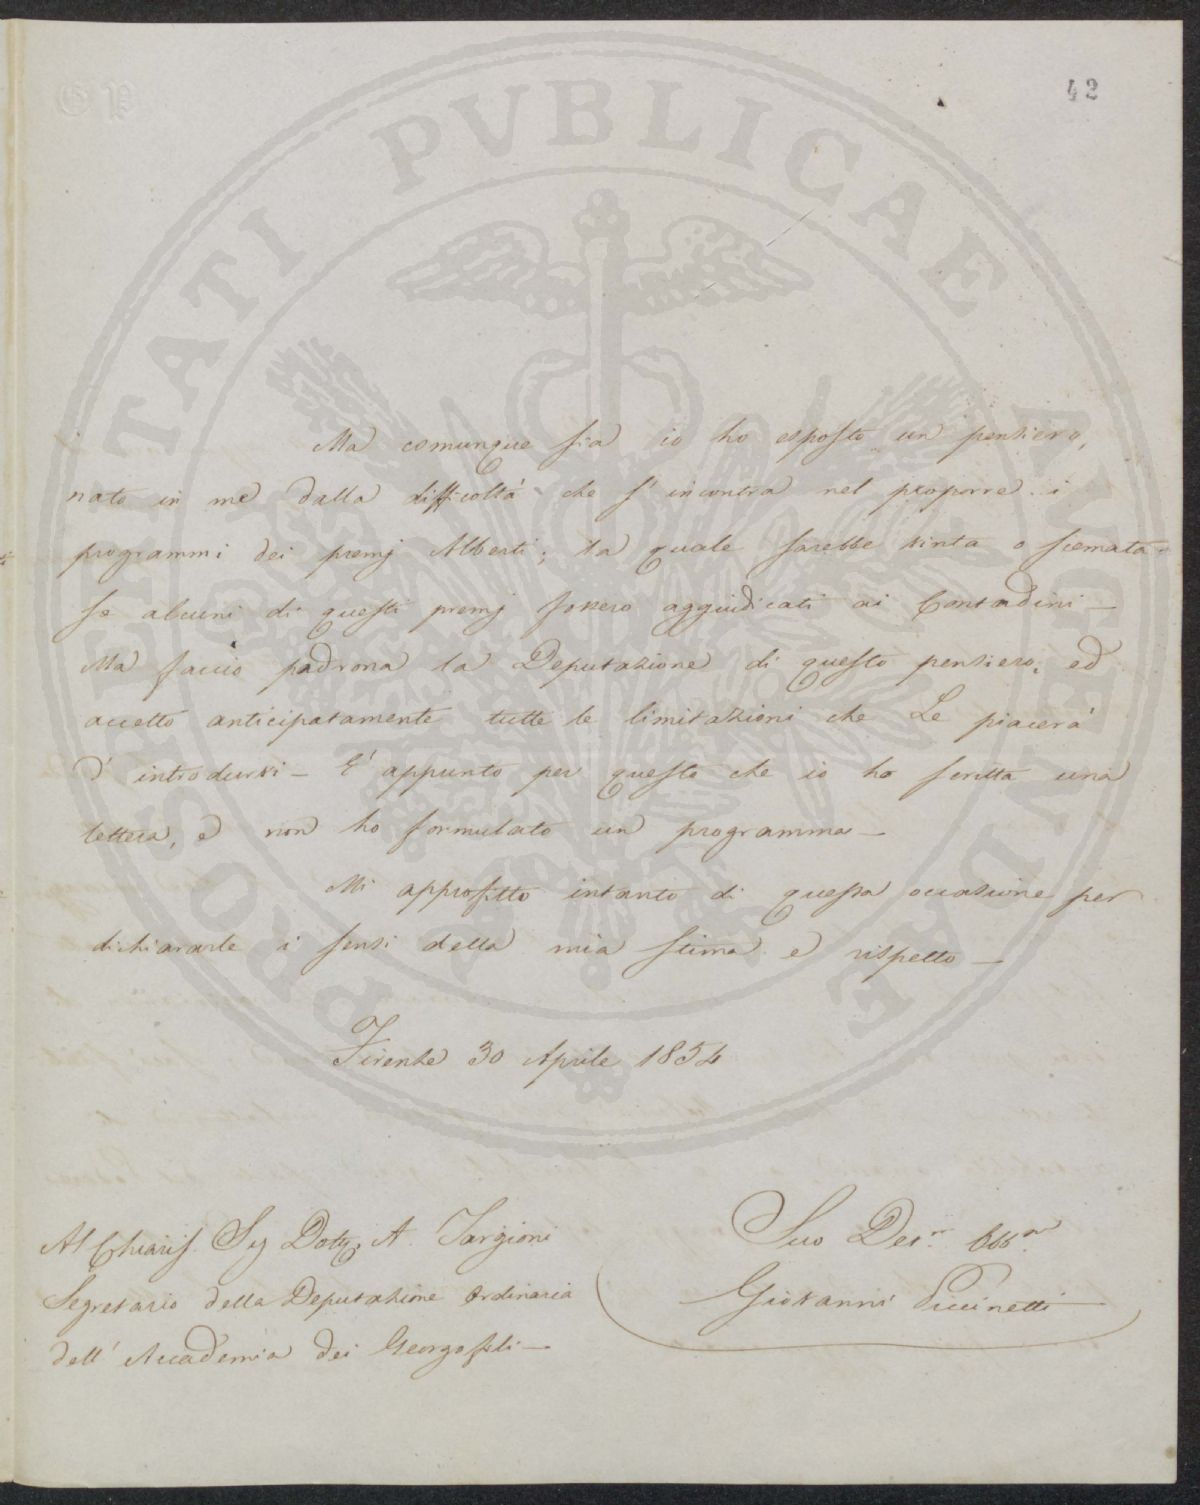 42
PROSPERITATI PVBLICAE AVGENDAE
Ma comunque sia io ho esposto un pensiero,
nato in me dalla difficoltà che s'incontra nel proporre i
programmi dei premj Alberti; la quale sarebbe vinta o scemata
se alcuni di questi premj fossero aggiudicati ai Contadini –
Ma faccio padrona la Deputazione di questo pensiero, ed
accetto anticipatamente tutte le limitazioni che Le piacerà
d'introdurvi – E' appunto per questo che io ho scritta una
lettera, e non ho formulato un programma –
Mi approfitto intanto di questa occasione per
dichiararle i sensi della mia stima e rispetto –
Firenze 30 Aprile 1854
Al Chiaris. Sig Dott. A. Targioni
Segretario della Deputazione Ordinaria
dell'Accademia dei Georgofili –
Suo Dev.
Giovanni Puccinetti